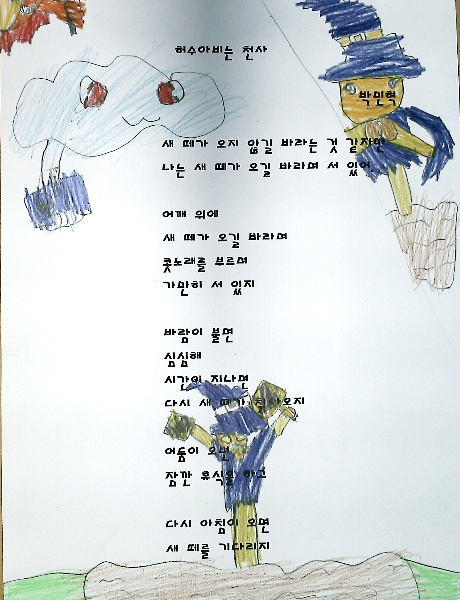 허수아비는 천사
박민혁
새 떼가 오지 않길 바라는 것 같지만
나는 새 떼가 오길 바라며 서 있어.
어깨 위에
새 떼가 오길 바라며
콧노래를 부르며
가만히 서 있지
바람이 불면
심심해
시간이 지나면
다시 새 떼가 찾아오지
어둠이 오면
잠깐 휴식을 하고
다시 아침이 오면
새 떼를 기다리지